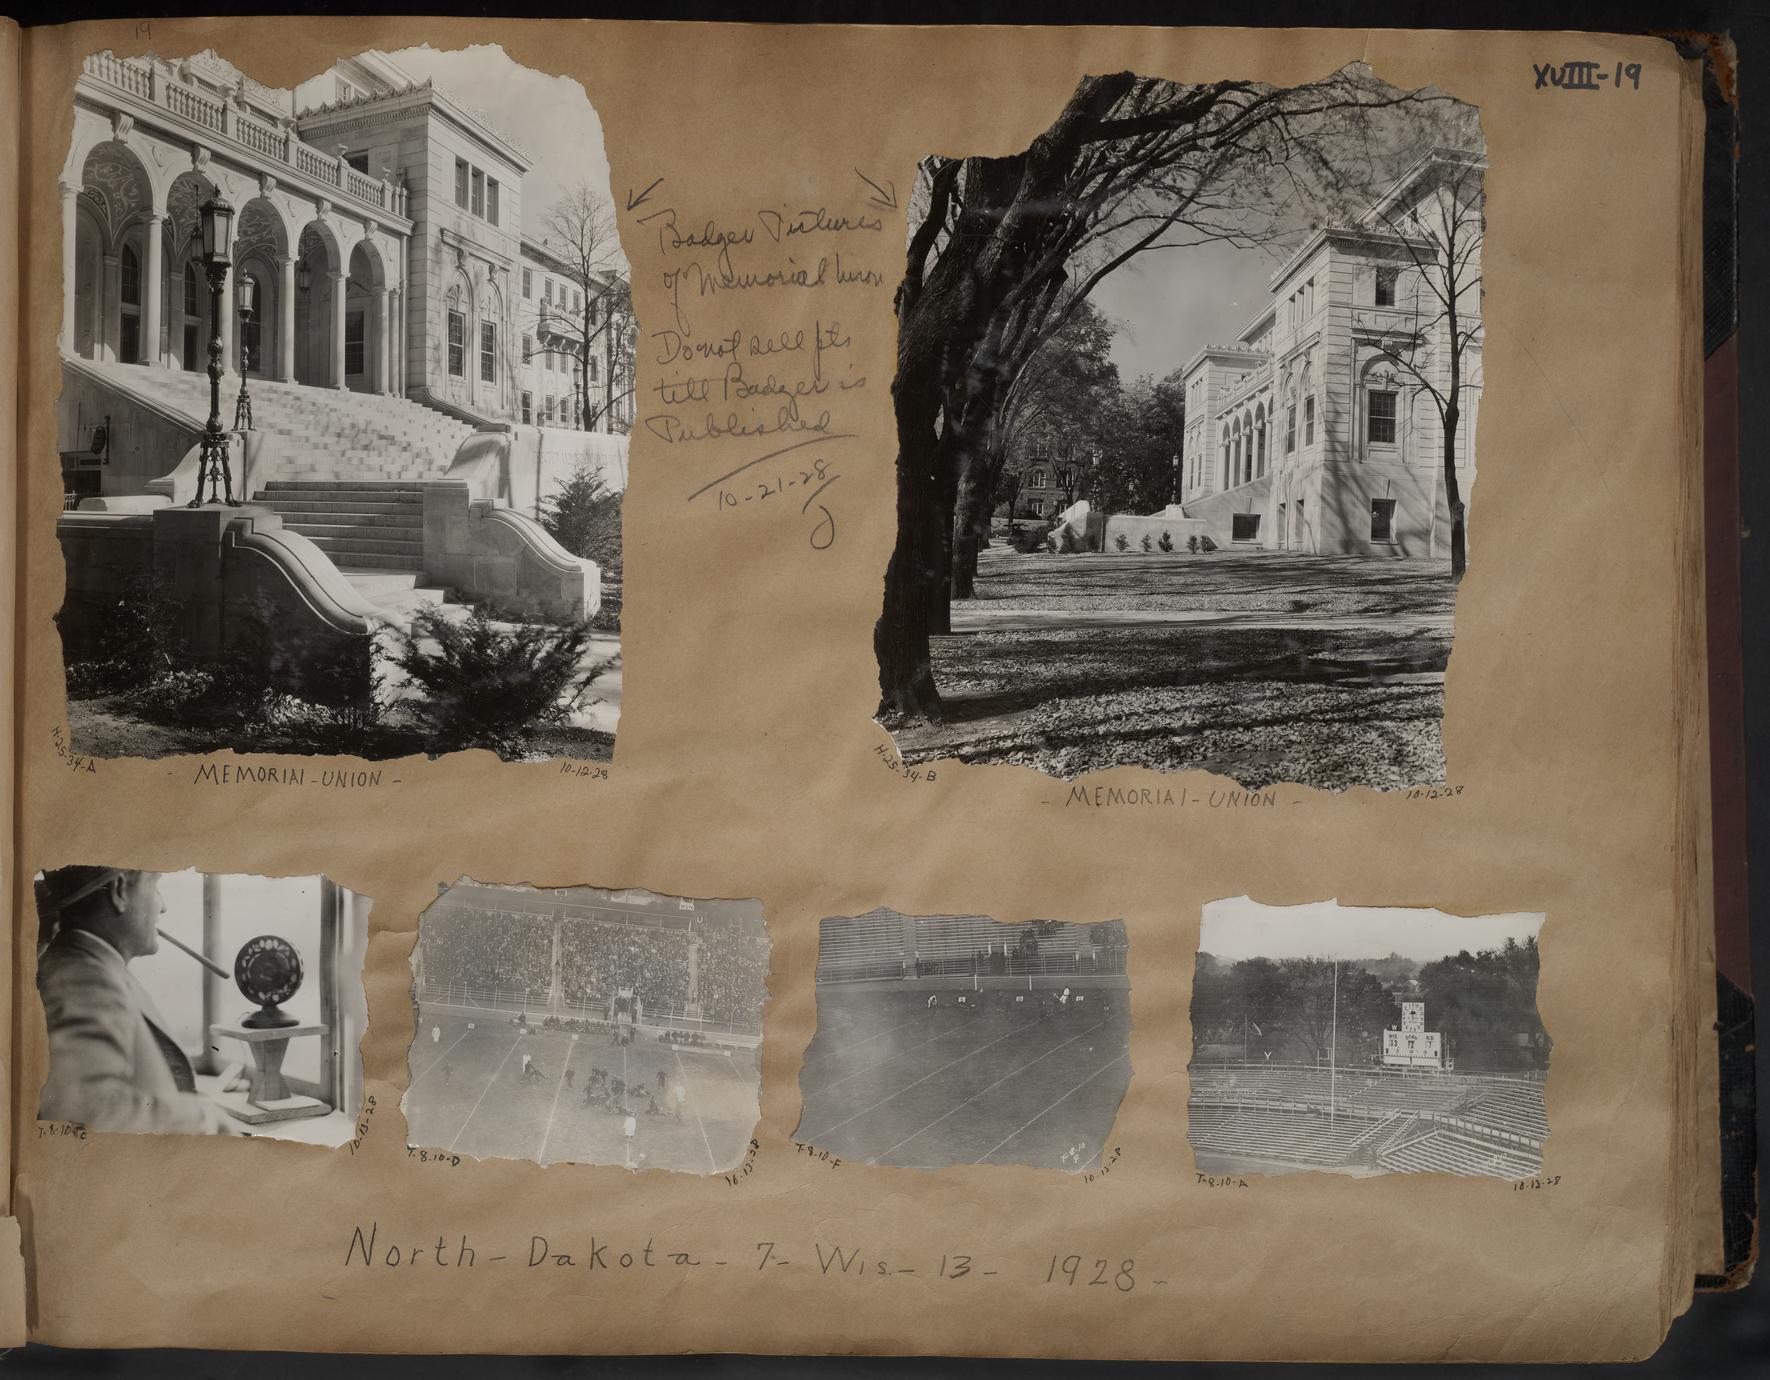 19
XVIII-19
Badger Pictures
of Memorial Union
Do not sell pts
till Badger is
Published
10-21-28
J
H-25-34-A
- MEMORIAL-UNION -
10-12-28
H-25-34-B
- MEMORIAL-UNION -
10-12-28
T-8-10-C
10-13-28
T-8-10-D
10-13-28
T-8-10-F
T-8-10
F
10-13-28
WIS
13
ND
7
T-8-10-A
10-13-28
North-Dakota - 7- Wis.- 13- 1928-